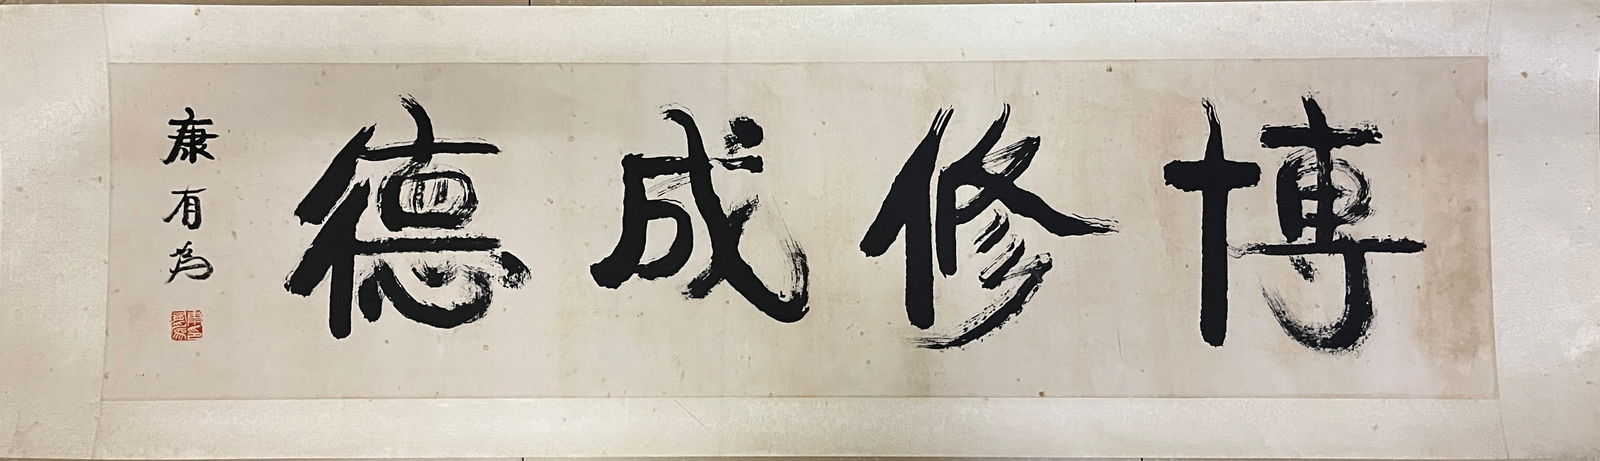 博修成德
康有為